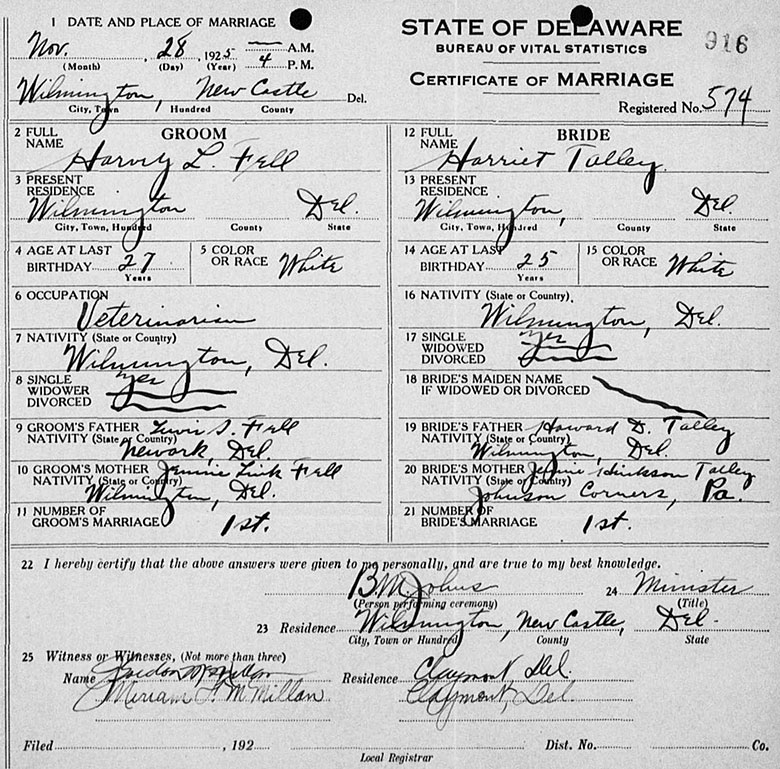 1 DATE AND PLACE OF MARRIAGE
STATE OF DELAWARE
BUREAU OF VITAL STATISTICS
916
Nov. , 28 , 1925 — A.M.
4 P.M.
(Month) (Day) (Year)
CERTIFICATE OF MARRIAGE
Wilmington, New Castle Del.
City, Town Hundred County
Registered No. 574
2 FULL NAME GROOM
Harvey L. Fell
12 FULL NAME BRIDE
Harriet Talley.
3 PRESENT RESIDENCE
Wilmington Del.
City, Town, Hundred County State
13 PRESENT RESIDENCE
Wilmington, Del.
City, Town, Hundred County State
4 AGE AT LAST BIRTHDAY 27 Years
5 COLOR OR RACE White
14 AGE AT LAST BIRTHDAY 25 Years
15 COLOR OR RACE White
6 OCCUPATION
Veterinarian
16 NATIVITY (State or Country)
Wilmington, Del.
7 NATIVITY (State or Country)
Wilmington, Del.
17 SINGLE yes
WIDOWED
DIVORCED
8 SINGLE yes
WIDOWER
DIVORCED
18 BRIDE'S MAIDEN NAME
IF WIDOWED OR DIVORCED
9 GROOM'S FATHER Lewis S. Fell
NATIVITY (State or Country)
Newark, Del.
19 BRIDE'S FATHER Howard D. Talley
NATIVITY (State or Country)
Wilmington, Del.
10 GROOM'S MOTHER Jennie Link Fell
NATIVITY (State or Country)
Wilmington, Del.
20 BRIDE'S MOTHER Jennie Hinkson Talley
NATIVITY (State or Country)
Johnson Corners, Pa.
11 NUMBER OF
GROOM'S MARRIAGE 1st.
21 NUMBER OF
BRIDE'S MARRIAGE 1st.
22 I hereby certify that the above answers were given to me personally, and are true to my best knowledge.
B. M. Johns 24 Minister
(Person performing ceremony) (Title)
23 Residence Wilmington, New Castle, Del.
City, Town or Hundred County State
25 Witness or Witnesses, (Not more than three)
Name Residence Claymont, Del.
Miriam F. McMillan Claymont, Del
Filed , 192 Dist. No. Co.
Local Registrar